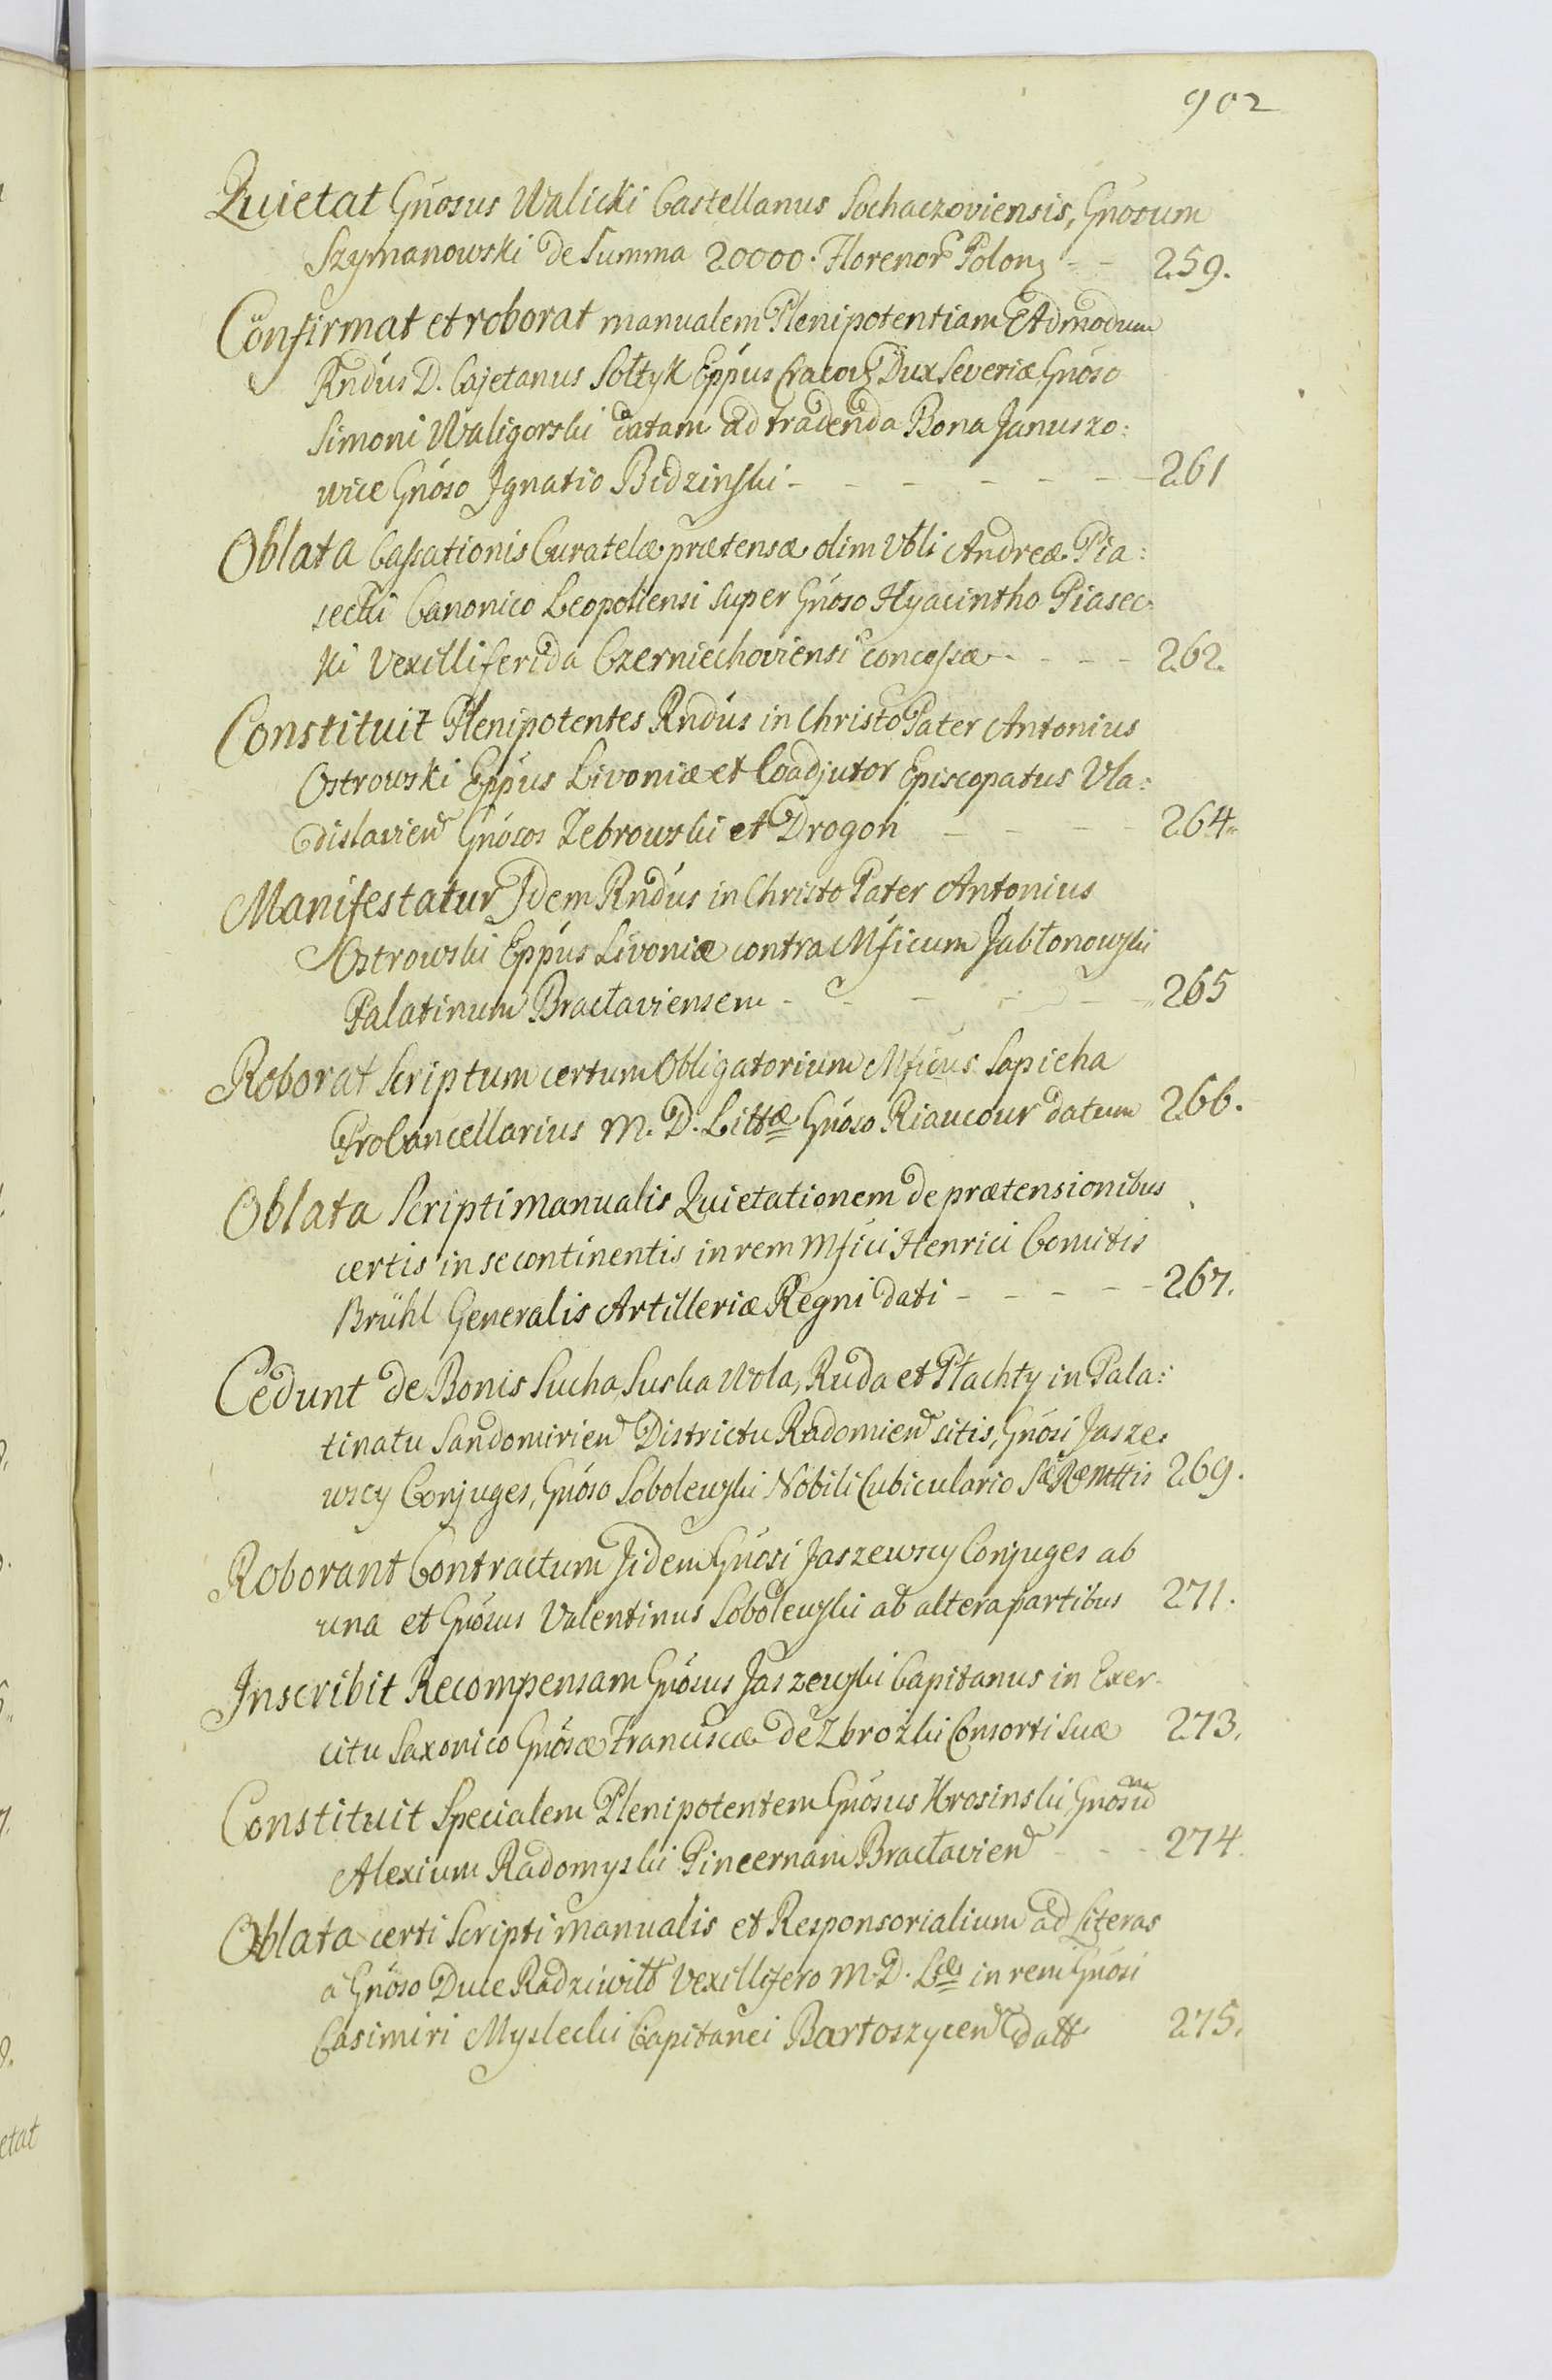 902
Quietat Gnosus Walicki Castellanus Sochaczoviensis, Gnosum
Szymanowski de Summa 20000. Florenor Polon - - 259.
Confirmat et roborat manualem Plenipotentiam Admodum
Rndus D. Cajetanus Sołtyk Eppus Cracov Dux Severiæ Gnoso
Simoni Waligorski datam ad tradenda Bona Januszo:
wice Gnoso Ignatio Bidzinski - - - - - - 261
Oblata Cassationis Curatelæ prætensæ olim Vbli Andreæ Pia:
secki Canonico Leopoliensi super Gnoso Hyacintho Piasec
ki Vexilliferida Czerniechoviensi concessæ - - - - 262.
Constituit Plenipotentes Rndus in Christo Pater Antonius
Ostrowski Eppus Livoniæ et Coadjutor Episcopatus Vla:
dislavien Gnosos Zebrowski et Drogon - - - - 264.
Manifestatur Idem Rndus in Christo Pater Antonius
Ostrowski Eppus Livoniæ contra Mficum Jabłonowski
Palatinum Bracłaviensem - - - - - - 265
Roborat Scriptum certum Obligatorium Mficus Sapieha
ProCancellarius M. D. Littæ Gnoso Riaucour datum 266.
Oblata Scripti manualis Quietationem de prætensionibus
certis in se continentis in rem Mfici Henrici Comitis
Brühl Generalis Artilleriæ Regni dati - - - - - 267.
Cedunt de Bonis Sucha, Suska Wola, Ruda et Płachty in Pala:
tinatu Sandomirien Districtu Radomien sitis, Gnosi Jasze:
wscy Conjuges, Gnoso Sobolewski Nobili Cubiculario Sæ Ræ Mttis 269.
Roborant Contractum Jidem Gnosi Jaszewscy Conjuges ab
una et Gnosus Valentinus Sobolewski ab altera partibus 271.
Inscribit Recompensam Gnosus Jaszewski Capitanus in Exer
citu Saxonico Gnosæ Franciscæ de Zbrozki Consorti Suæ 273.
Constituit Specialem Plenipotentem Gnosus Krosinski, Gnosum
Alexium Radomyski Pincernam Bracłavien - - - 274.
Oblata certi Scripti manualis et Responsorialium ad Literas
a Gnoso Duce Radziwiłł Vexillifero M. D. L. in rem Gnosi
Casimiri Myslecki Capitanei Bartoszycen datt 275.
etat